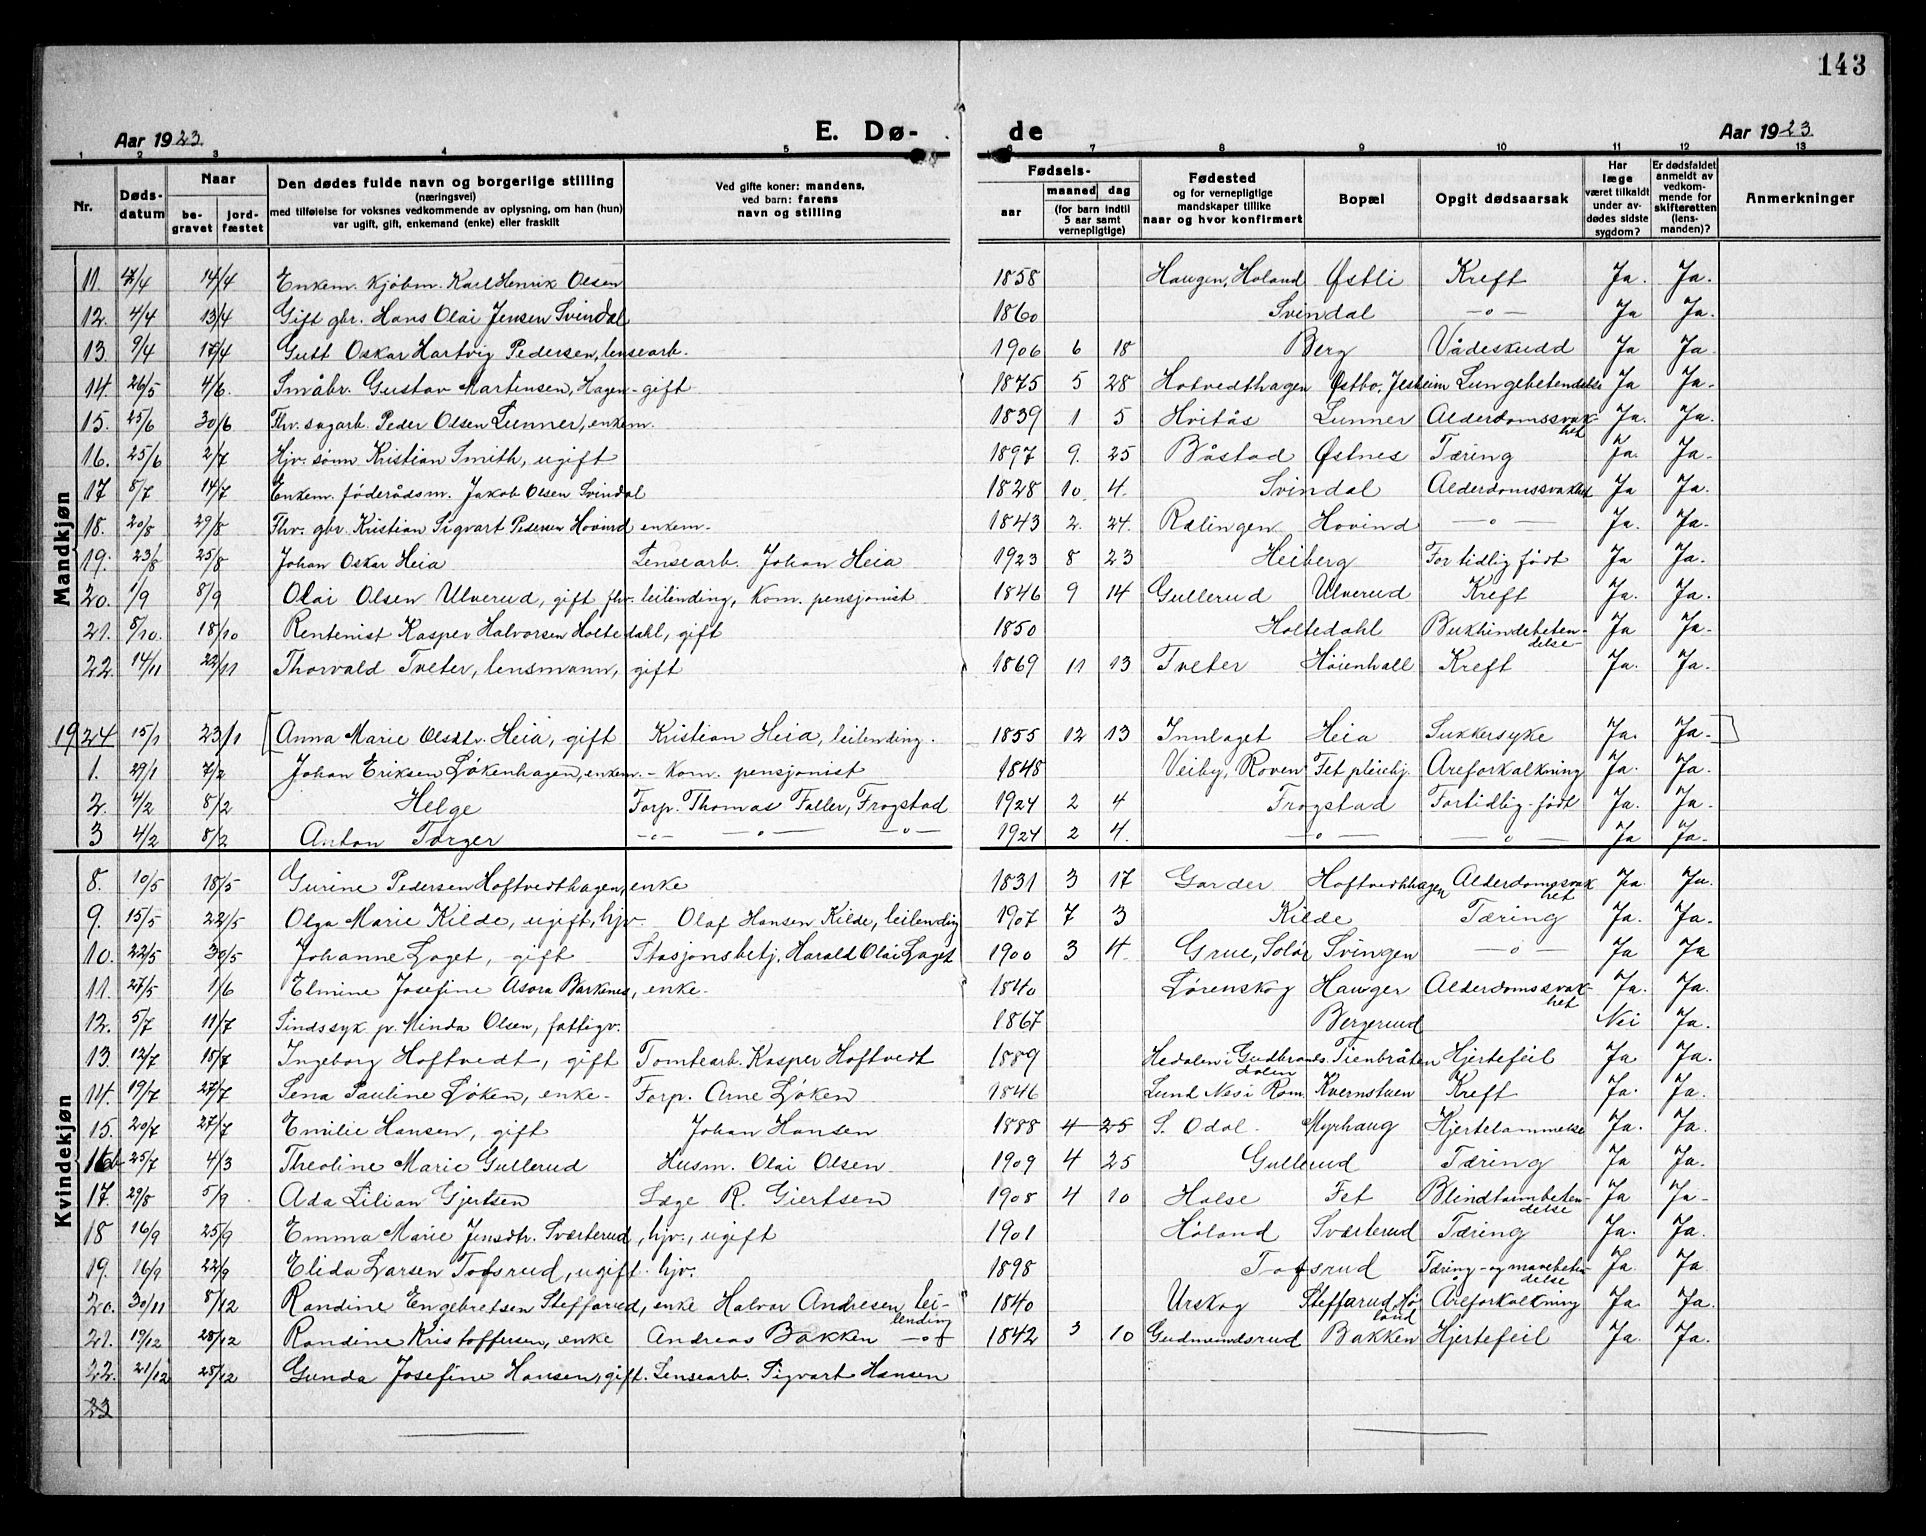 143
Aar 1923. E. Dø- de Aar 1923.
1 2 3 4 5 6 7 8 9 10 11 12 13
Nr. Døds-datum Naar be-gravet jord-fæstet Den dødes fulde navn og borgerlige stilling (næringsvei) med tilføielse for voksnes vedkommende av oplysning, om han (hun) var ugift, gift, enkemand (enke) eller fraskilt Ved gifte koner: mandens, ved barn: farens navn og stilling Fødsels- aar maaned dag (for barn indtil 5 aar samt vernepligtige) Fødested og for vernepligtige mandskaper tillike naar og hvor konfirmert Bopæl Opgit dødsaarsak Har læge været tilkaldt under av-dødes sidste sygdom? Er dødsfaldet anmeldt av vedkom-mende for skifteretten (lens-manden)? Anmerkninger
Mandkjøn
11. 7/4 14/4 Enkem. Kjøbm. Karl Henrik Olsen 1858 Haugen, Høland Østli Kreft Ja. Ja.
12. 4/4 13/4 Gift gbr. Hans Olai Jensen Svindal 1860 Svindal —o— Ja Ja.
13 9/4 17/4 Gutt Oskar Hartvig Pedersen, lensearb. 1906 6 18 Berg Vådeskudd Ja Ja.
14. 26/5 4/6. Småbr. Gustav Martinsen, Hagen - gift 1875 5 28 Hotvedthagen Østbo, Jesheim Lungebetendelse Ja Ja.
15. 25/6 30/6 Fhv. sagarb. Peder Olsen Lunner, enkem. 1839 1 5 Hvitås Lunner Alderdomssvakhet Ja. Ja.
16. 25/6 2/7 Hjv. sønn Kristian Smith, ugift 1897 9. 25 Båstad Østnes Tæring Ja. Ja.
17 8/7 14/7 Enkem. føderådsm. Jakob Olsen Svindal 1828 10 4. Svindal Alderdomssvakhet Ja Ja.
18. 20/8 29/8 Fhv. gbr. Kristian Sigvart Pedersen Hovind enkem. 1843 2. 24. Rælingen Hovind —o— Ja. Ja.
19. 23/8 25/8 Johan Oskar Heia Lensearb. Johan Heia 1923 8 23 Heiberg For tidlig født Ja Ja.
20. 1/9 8/9 Olai Olsen Ulverud, gift fhv. leilending, kom. pensjonist 1846 9 14 Gullerud Ulverud Kreft Ja. Ja.
21. 8/10. 18/10 Rentenist Kasper Halvorsen Holtedahl, gift 1850 Holtedahl Bukhindebeten-delse- Ja Ja.
22. 14/11 22/11 Thorvald Tveter, lensmann, gift 1869 11 13 Tveter Høienhall Kreft Ja. Ja.
1924 15/1 23/1 [Anna Marie Olsdtr. Heia, gift Kristian Heia, leilending. 1855 12 13 Innlaget Heia Sukkersyke Ja. Ja.]
1. 29/1 7/2 Johan Eriksen Løkenhagen, enkem. - Kom. pensjonist 1848 Veiby, Roven Fet pleiehj. Areforkalkning Ja. Ja.
2. 4/2 8/2 Helge Forp. Thomas Faller, Frogstad 1924 2 4 Frogstad For tidlig født Ja. Ja.
3 4/2 8/2 Anton Torger —o— —o— —o— 1924 2 4. —o— —o— Ja Ja.
Kvindekjøn
8. 10/5 18/5 Gurine Pedersen Hoftvedthagen, enke 1831 3 17 Garder Hoftvedthagen Alderdomssvakhet Ja. Ja.
9. 15/5 22/5 Olga Marie Kilde, ugift, hjv. Olaf Hansen Kilde, leilending 1907 7 3 Kilde Tæring Ja. Ja.
10. 22/5 30/5 Johanne Laget, gift Stasjonsbetj. Harald Olai Laget 1900 3 4. Grue, Solør Svingen —o— Ja Ja
11. 27/5 1/6 Elmine Josefine Asora Barkenes, enke. 1840 Lørenskog Hauger Alderdomssvakhet Ja. Ja.
12. 5/7 11/7 Sindssyk p. Minda Olsen, fattigv. 1867 Bergerud Nei Ja.
13. 12/7 18/7 Ingeborg Hoftvedt, gift Tomtearb. Kasper Hoftvedt 1889 Hedalen i Gudbrands-dalen Tienbråten Hjertefeil Ja Ja.
14. 19/7 27/7 Lena Pauline Løken, enke- Forp. Arne Løken 1846 Lund Nes i Rom. Kvernstuen Kreft Ja. Ja.
15. 20/7 27/7 Emilie Hansen, gift Johan Hansen 1888 4 25 S. Odal. Myrhaug Hjertelammelse Ja. Ja.
16 25/7 4/3 Theoline Marie Gullerud Husm. Olai Olsen 1909 4 25 Gullerud Tæring Ja Ja.
17. 29/8 5/9 Ada Lilian Gjertsen Læge R. Giertsen 1908 4 10 Halse Fet Blindtarmbeten-delse Ja Ja-
18 16/9 25/9 Emma Marie Jensdtr. Sværterud, hjv., ugift 1901 Høland Sværterud Tæring Ja. Ja.
19. 16/9 22/9 Elida Larsen Tofsrud, ugift. hjv. 1898 Tofsrud Tæring- og mavebeten-delse Ja. Ja
20. 30/11 8/12 Randine Engebretsen Steffarud, enke Halvor Andresen lei-lending 1840 Urskog Steffarud Hø-land Åreforkalkning Ja. Ja.
21. 19/12 28/12 Randine Kristoffersen, enke Andreas Bakken —o— 1842 3 10 Gudmundsrud Bakken Hjertefeil Ja. Ja.
22. 21/12 28/12 Gunda Josefine Hansen, gift. Lensearb. Sigvart Hansen
23